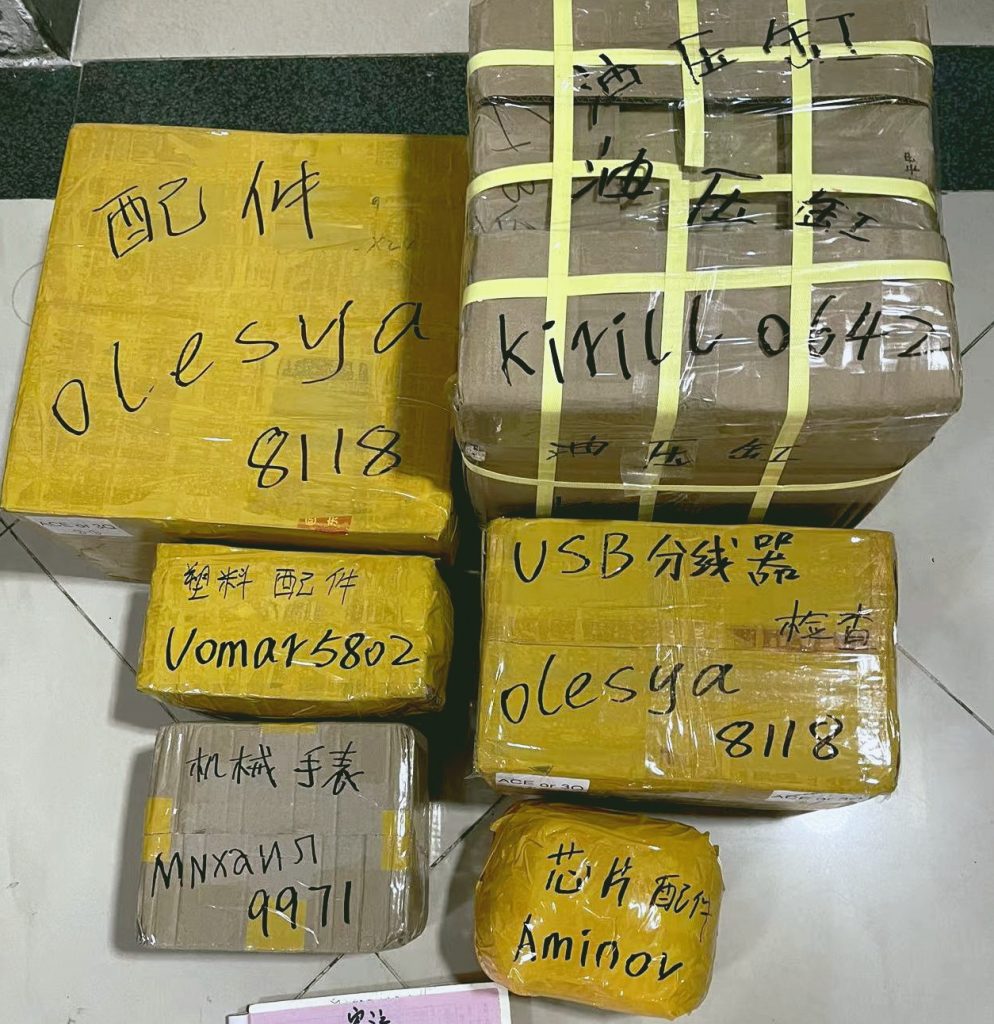 油压缸
油压缸
kirill 0642
油压缸
配件
olesya
8118
ACE or 3Q
塑料配件
Vomar5802
USB分线器
检查
olesya
8118
ACE or 3Q
ACE or 3Q
机械手表
МNхаил
9971
芯片配件
Aminov